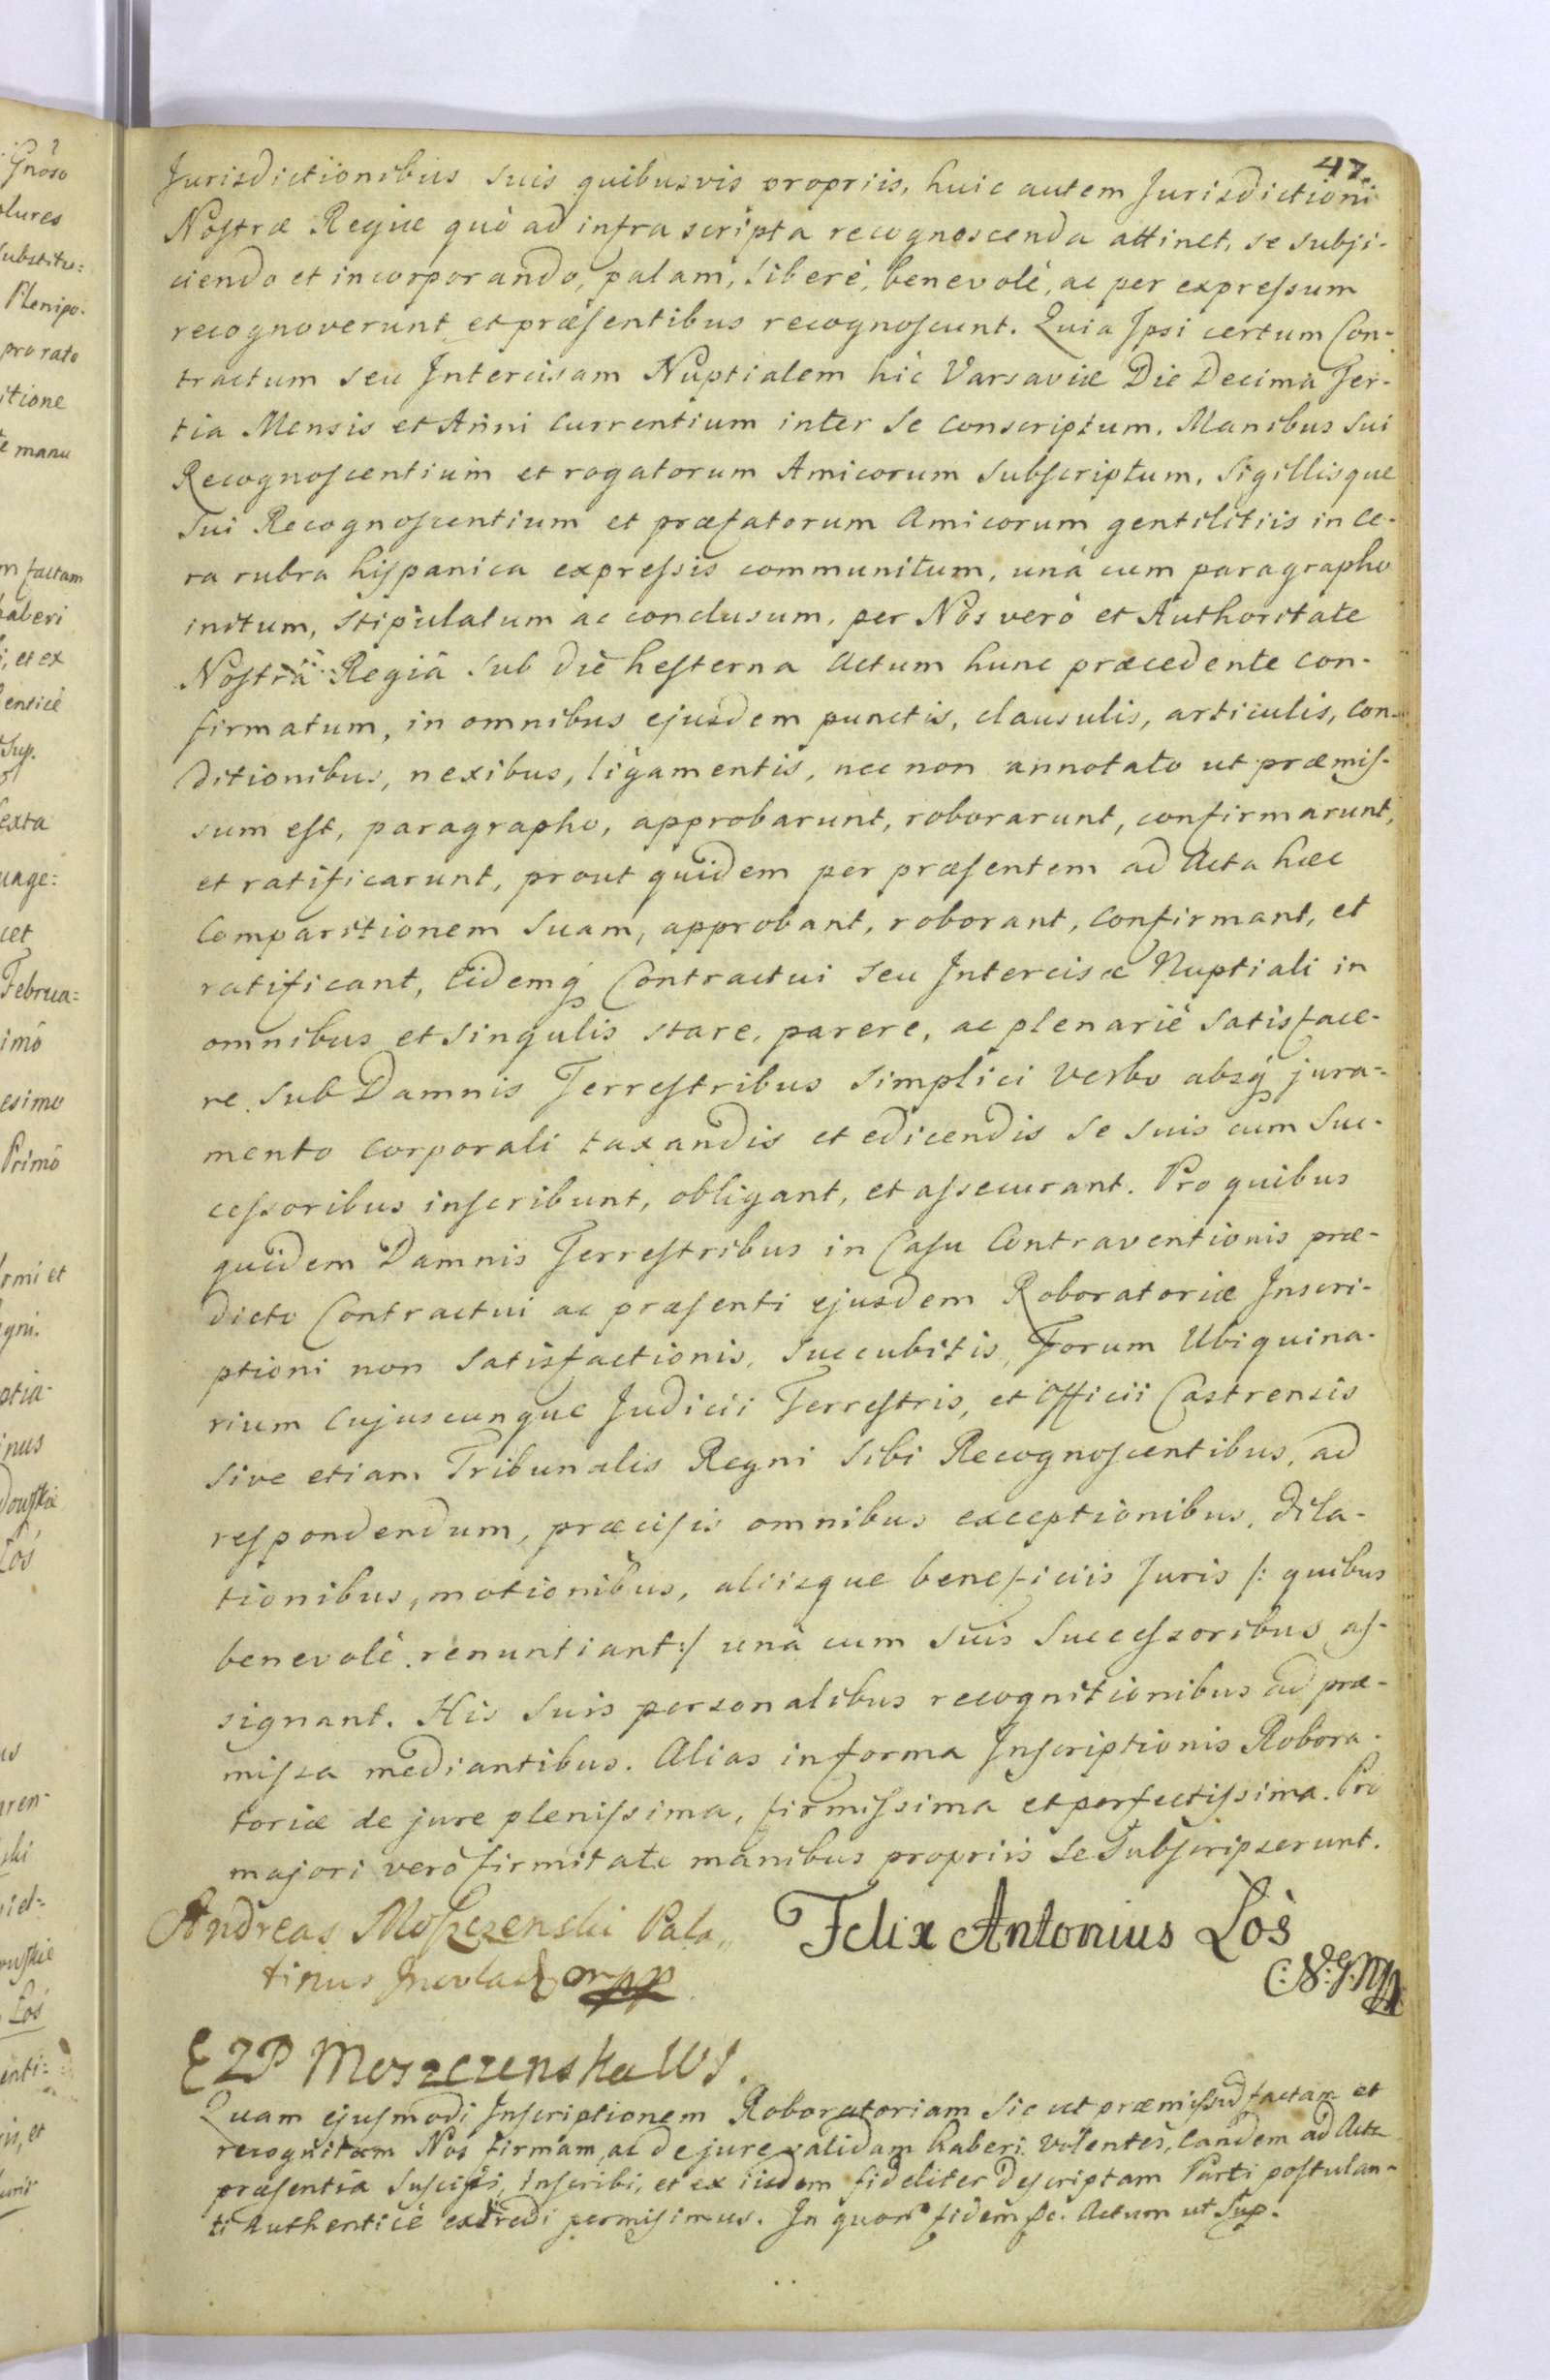 47.
Jurisdictionibus suis quibusvis propriis, huic autem Jurisdictioni
Nostræ Regiæ quò ad infra scripta recognoscenda attinet, se subji-
ciendo et incorporando, palam, liberè, benevolè, ac per expressum
recognoverunt et præsentibus recognoscunt. Quia Ipsi certum Con-
tractum seu Intercisam Nuptialem hic Varsaviæ Die Decima Ter-
tia Mensis et Anni currentium inter se conscriptum, Manibus sui
Recognoscentium et rogatorum Amicorum subscriptum, Sigillisque
sui Recognoscentium et præfatorum Amicorum gentilitiis in ce-
ra rubra hispanica expressis communitum, unà cum paragrapho
initum, stipulatum ac conclusum, per Nos verò et Authoritate
Nostrâ Regiâ sub die hesterna Actum hunc præcedente con-
firmatum, in omnibus ejusdem punctis, clausulis, articulis, con-
ditionibus, nexibus, ligamentis, nec non annotato ut præmis-
sum est, paragrapho, approbarunt, roborarunt, confirmarunt,
et ratificarunt, prout quidem per præsentem ad Acta hæc
Comparitionem suam, approbant, roborant, confirmant, et
ratificant, Eidemq Contractui seu Intercisæ Nuptiali in
omnibus et singulis stare, parere, ac plenariè satisface-
re sub Damnis Terrestribus simplici verbo absq jura-
mento corporali taxandis et edicendis se suis cum suc-
cessoribus inscribunt, obligant, et assecurant. Pro quibus
quidem Damnis Terrestribus in Casu Contraventionis præ-
dicto Contractui ac præsenti ejusdem Roboratoriæ Inscri-
ptioni non satisfactionis, succubitis, Forum Ubiquina-
rium cujuscunque Judicii Terrestris, et Officii Castrensis
sive etiam Tribunalis Regni sibi Recognoscentibus, ad
respondendum, præcisis omnibus exceptionibus, dila-
tionibus, motionibus, aliisque beneficiis Juris /: quibus
benevolè renuntiant :/ unà cum suis Successoribus as-
signant. His suis personalibus recognitionibus ad præ-
missa mediantibus. Alias in forma Inscriptionis Robora-
toriæ de jure plenissima, firmissima et perfectissima. Pro
majori verò firmitate manibus propriis se subscripserunt.
Andreas Moszczenski Pala„ Felix Antonius Łòs
tinus mpp
E Z P Moszczenska WJ.
Quam ejusmodi Inscriptionem Roboratoriam sic ut præmissũ factam et
recognitam Nos firmam, ac de jure validam haberi volentes, eandem ad Acta
præsentia suscipi, inscribi, et ex iisdem fideliter descriptam Parti postulan-
ti Authenticè extradi permisimus. In quor fidem &c. Actum ut Sup.